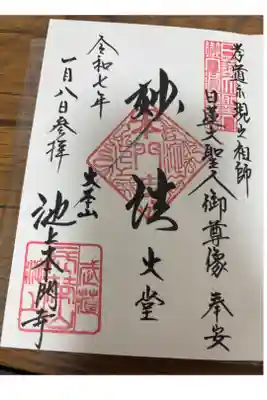 示現之祖師
日蓮大聖人御尊像 奉安
妙法
大堂
令和七年
一月八日參拝
大本山
池上本門寺